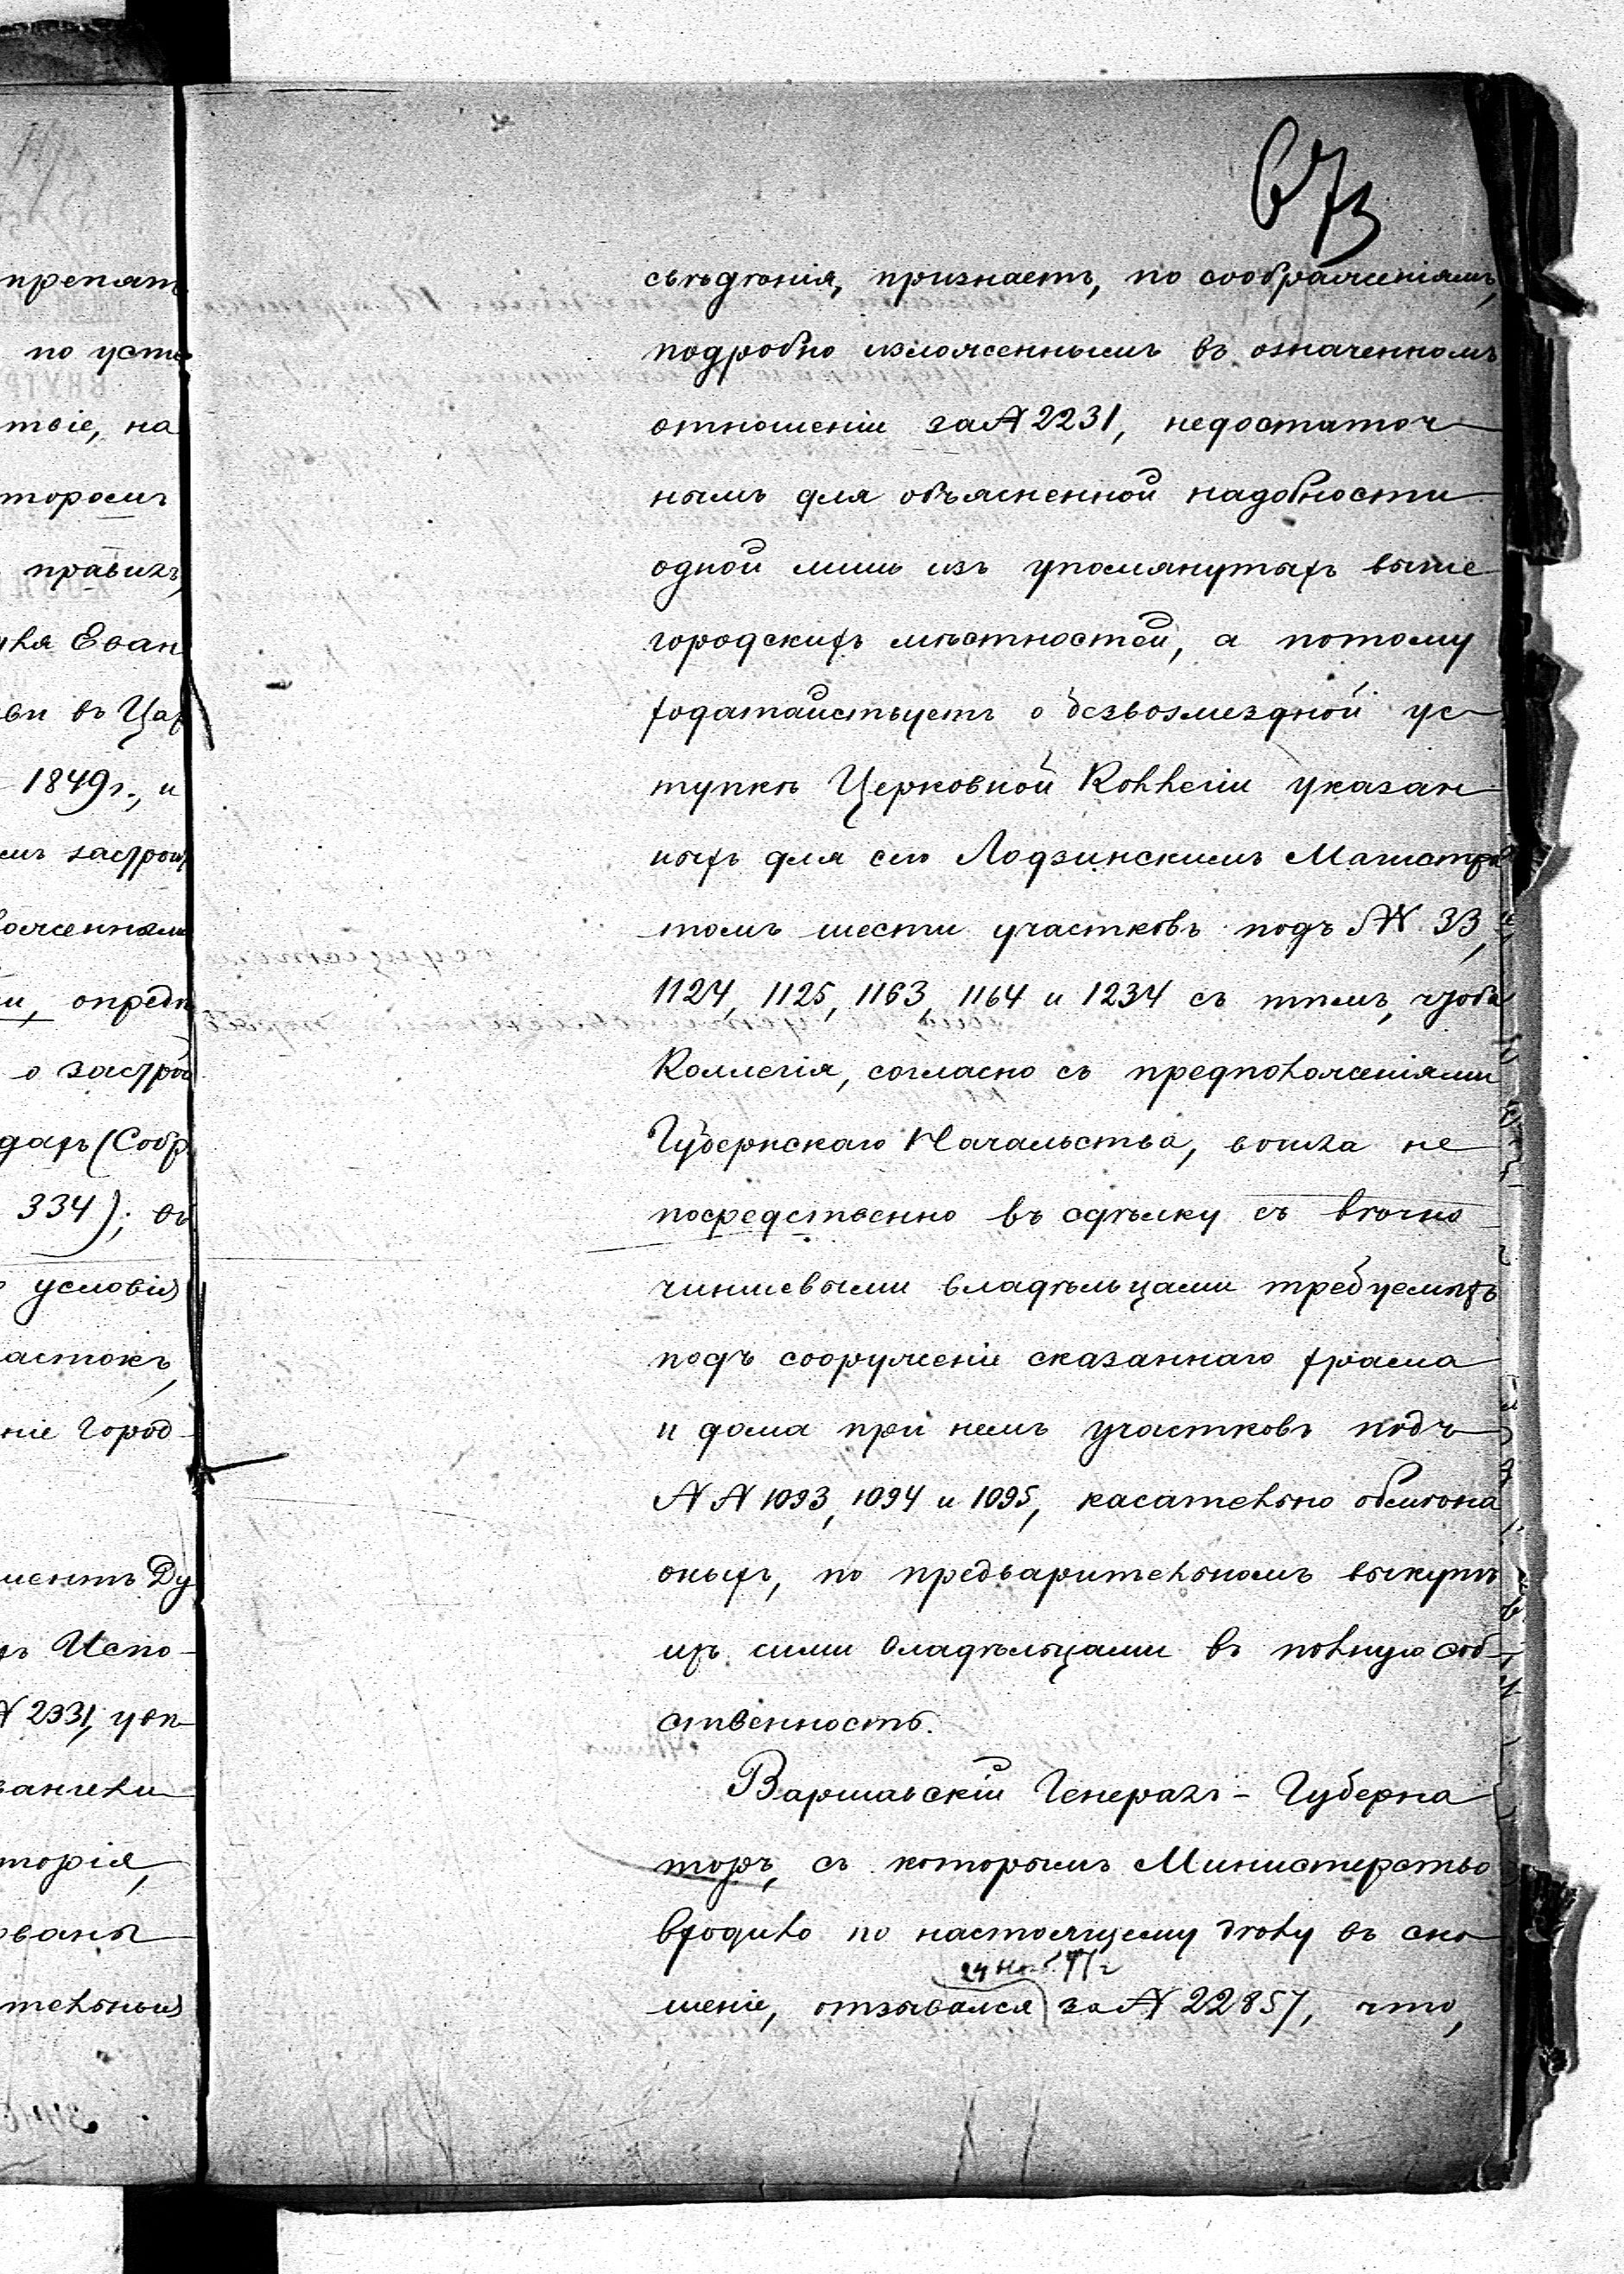 673
свѣдѣнія, признаетъ, по соображеніямъ,
подробно изложеннымъ въ означенномъ
отношеніи за № 2231, недостаточ-
нымъ для объясненной надобности
одной лишь изъ упомянутыхъ выше
городскихъ мѣстностей, а потому
ходатайствуетъ о безвозмездной ус-
тупкѣ Церковной Коллегіи указан-
ныхъ для сего Лодзинскимъ Магистра
томъ шести участковъ подъ №№ 33,
1124, 1125, 1163, 1164 и 1234 съ тѣмъ, чтобы
Коллегія, согласно съ предположеніями
Губернскаго Начальства, вошла не
посредственно въ сдѣлку съ вѣчно-
чиншевыми владѣльцами требуемыхъ
подъ сооруженіе сказаннаго храма
и дома при немъ участковъ подъ
№№ 1093, 1094 и 1095, касательно обмѣна
оныхъ, по предварительномъ выкупѣ
ихъ сими владѣльцами въ полную соб-
ственность.
Варшавскій Генералъ-Губерна
торъ, съ которымъ Министерство
входило по настоящему дѣлу въ сно
24
шеніе, отзывался за № 22857, что,
препят
по устр
твіе, на
торомъ
правилъ
Еван
въ Цар
1849г., и
застрои
оженным
и, опредѣ
о застрой
(Собр
334); въ
условія
астокъ,
ніе Город-
ментъ Ду
Испо-
№ 2231, увѣ
вангели
торія,
ованы
тельныя